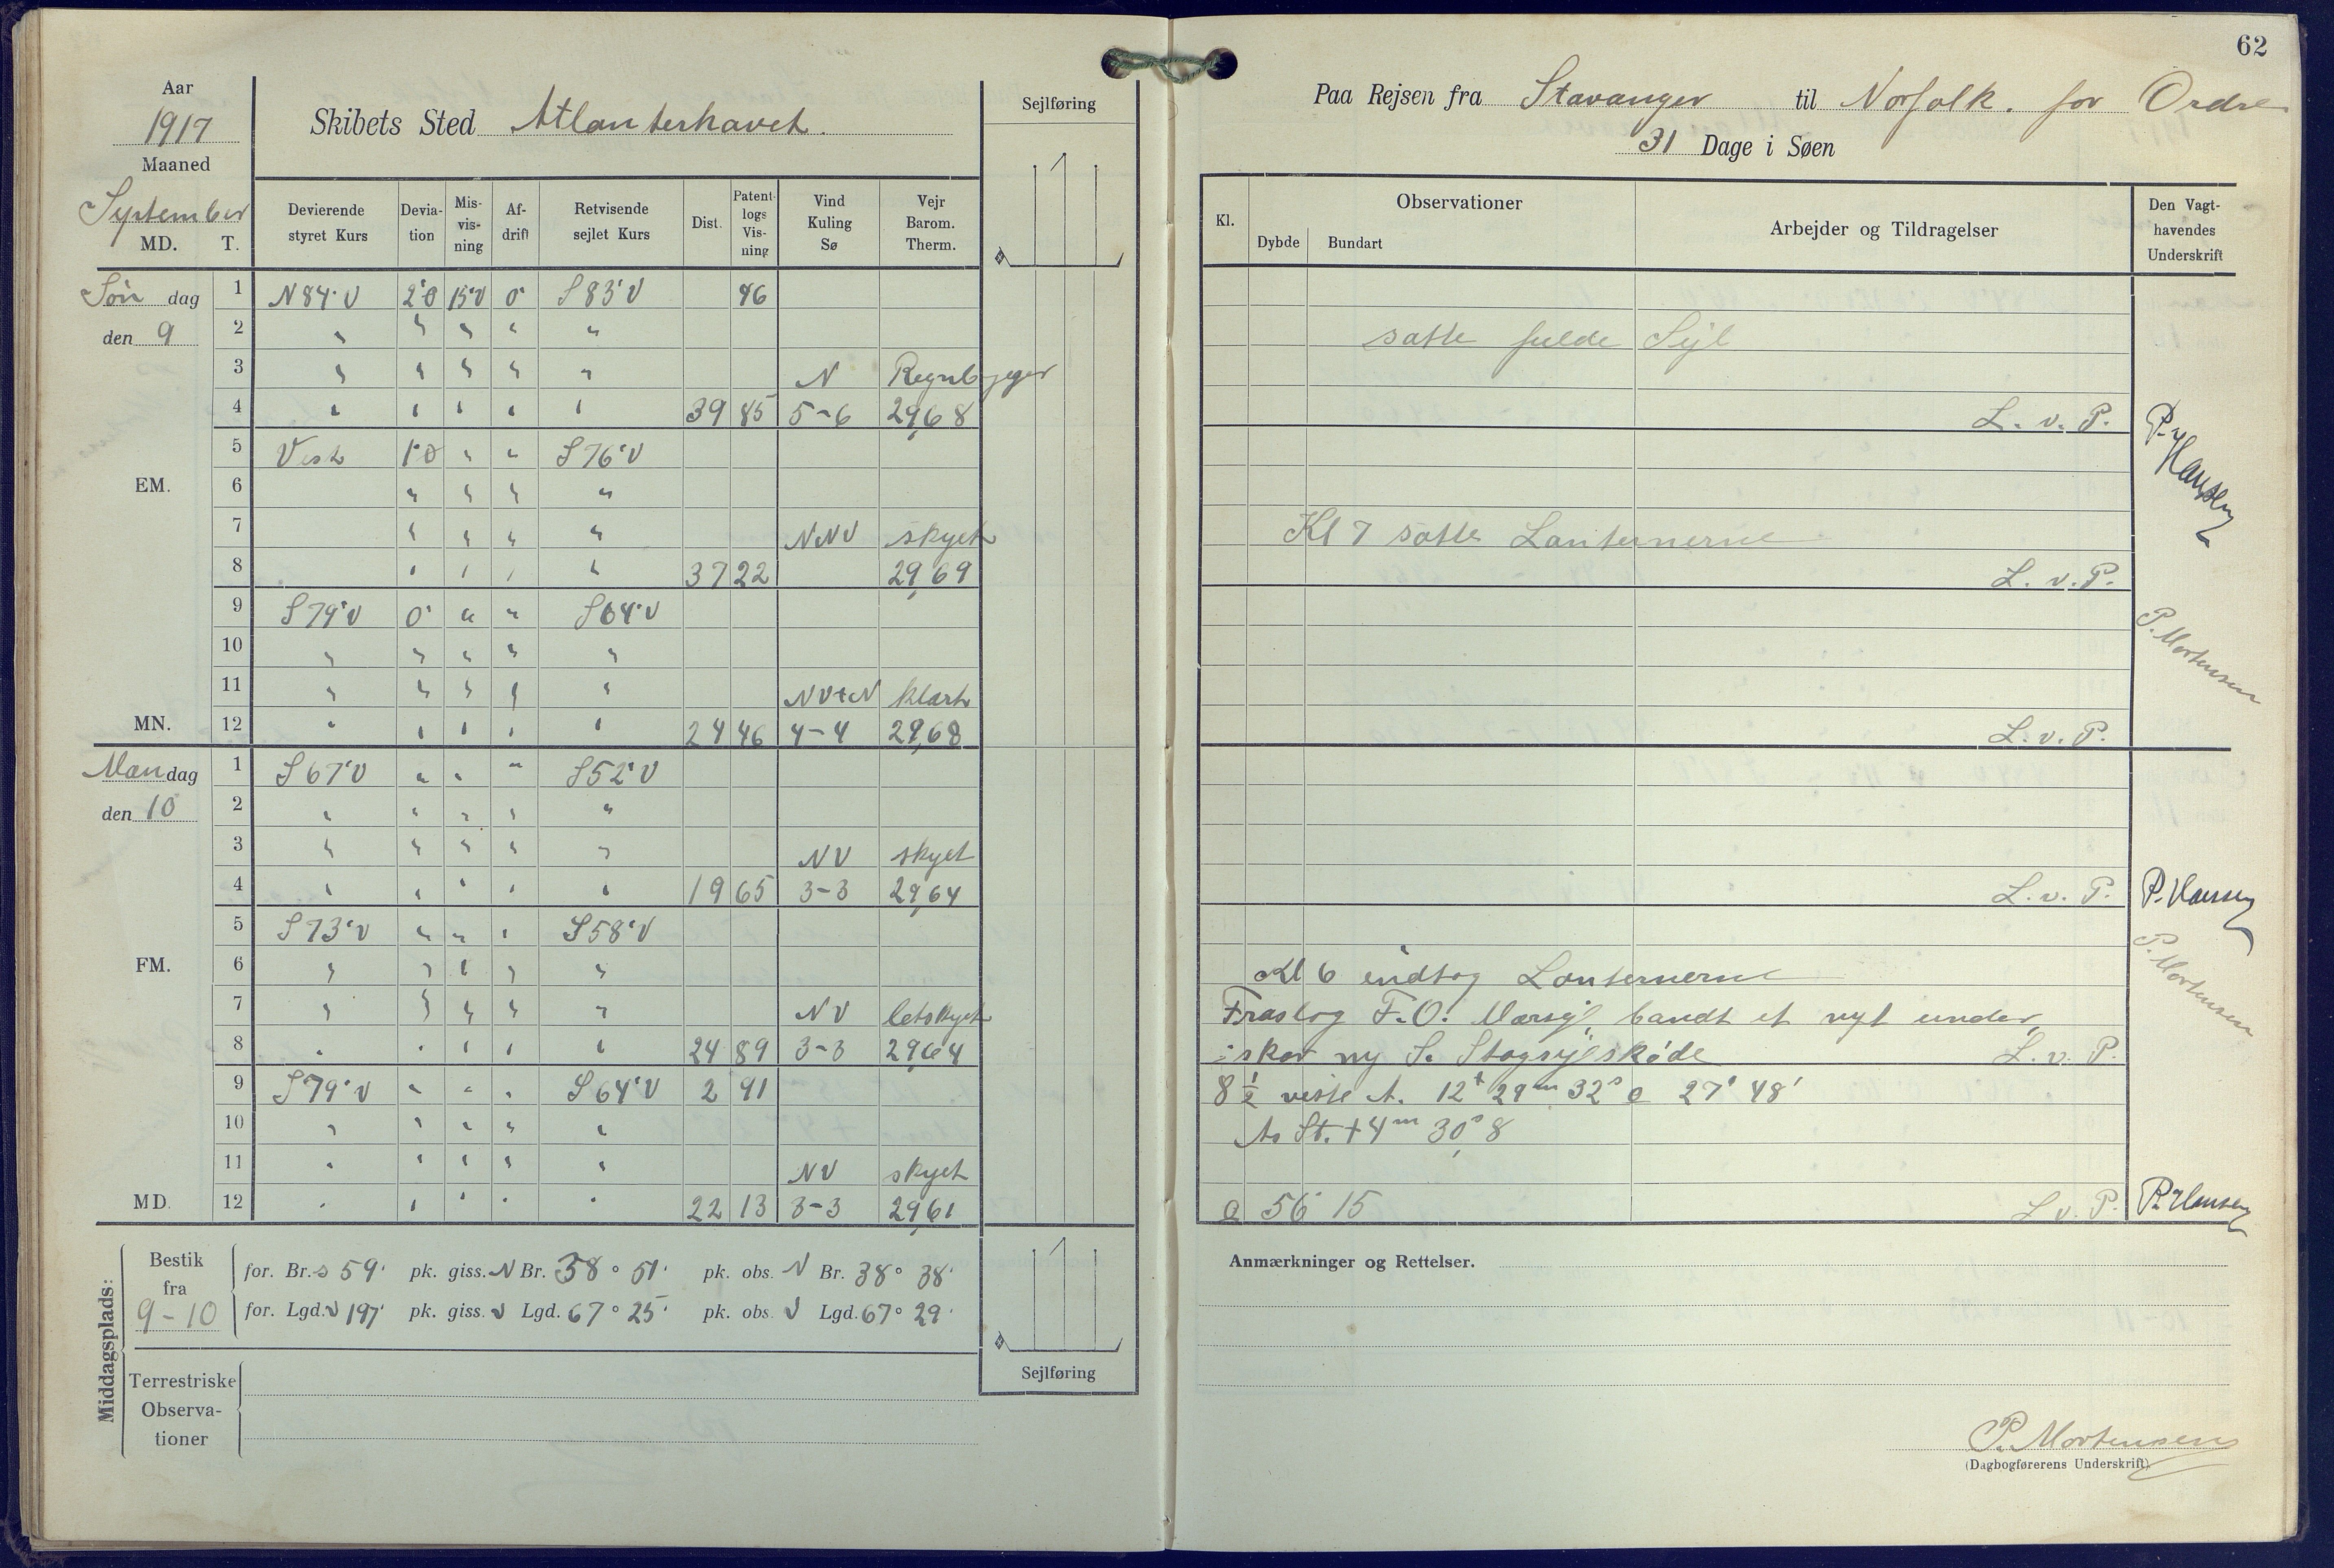 62
Aar
1917
Maaned
September
MD. T.
Skibets Sted Atlanterhavet.
Sejlføring
Paa Rejsen fra Stavanger til Norfolk. for Ordre
31 Dage i Søen
Devierende styret Kurs
Devia-tion
Mis-vis-ning
Af-drift
Retvisende sejlet Kurs
Dist.
Patent-logs Vis-ning
Vind Kuling Sø
Vejr Barom. Therm.
Kl.
Observationer
Dybde Bundart
Arbejder og Tildragelser
Den Vagt-havendes Underskrift
Søn dag 1 N 84° V 2°Ø 15°V 0° S 83° V 46
den 9 2 " " " " "
satte fulde Sejl
3 " " " " " N Regnbyger
4 " " " " " 39 85 5-6 29,68
L. v. P. P. Hansen
5 Vest 1°Ø " " S 76° V
EM. 6 " " " "
7 " " " " NNV skyet
Kl 7 satte Lanternerne
8 " " " " 37 22 29,69
L. v. P.
9 S 79° V 0° " " S 64° V
P. Mortensen
10 " " " " "
11 " " " " " NVtN klart
MN. 12 " " " " " 24 46 4-4 29,68
L. v. P.
Man dag 1 S 67° V " " " S 52° V
den 10 2 " " " " "
3 " " " " " NV skyet
4 " " " " " 19 65 3-3 29,64
L. v. P. P. Hansen
5 S 73° V " " " S 58° V
P. Mortensen
FM. 6 " " " " "
Kl 6 indtog Lanternerne
7 " " " " " NV letskyet
Fraslog F.O. Mærsejl, bandt et nyt under,
8 " " " " " 24 89 3-3 29,64
iskar ny S. Stagsejlskøde L. v. P.
9 S 79° V " " " S 64° V 2 91
8 1/2 viste 12t 29m 32s 27° 48'
10 " " " " "
St. + 4m 30s,8
11 " " " " " NV skyet
MD. 12 " " " " " 22 13 3-3 29,61
56° 15 L v. P. P. Hansen
Middagsplads:
Bestik fra 9-10
for. Br. S 59' pk. giss. N Br. 38° 51' pk. obs. N Br. 38° 38'
for. Lgd. V 197' pk. giss. V Lgd. 67° 25' pk. obs. V Lgd. 67° 29'
Terrestriske Observa-tioner
Sejlføring
Anmærkninger og Rettelser.
P. Mortensen
(Dagbogførerens Underskrift)